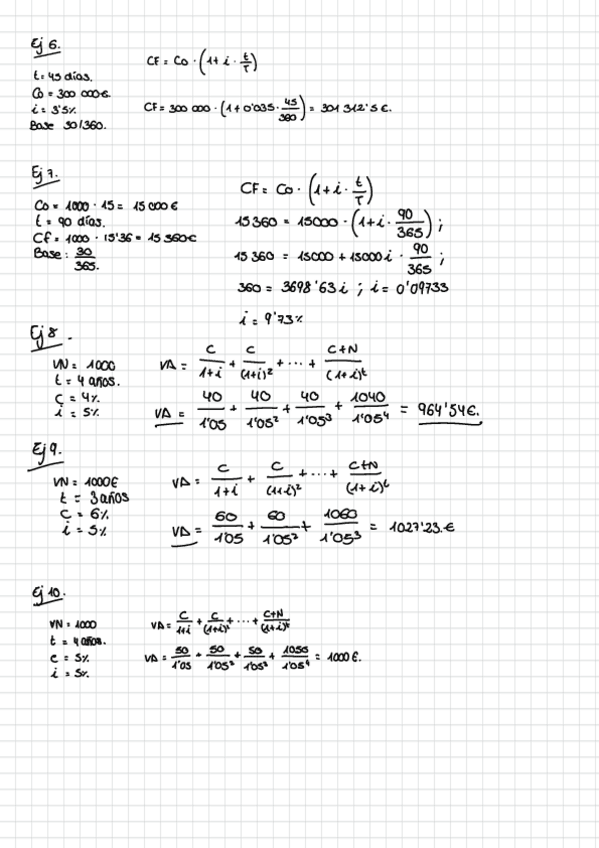 Ej 6.
CF = Co · (1 + i · t/T)
t = 45 días.
Co = 300 000 €.
i = 3'5%
Base 30/360.
CF = 300 000 · (1 + 0'035 · 45/360) = 301 312'5 €.
Ej 7.
Co = 1000 · 15 = 15 000 €
t = 90 días.
CF = 1000 · 15'36 = 15 360 €
Base: 30/365.
CF = Co · (1 + i · t/T)
15 360 = 15000 · (1 + i · 90/365) ;
15 360 = 15000 + 15000 i · 90/365 ;
360 = 3698'63 i ; i = 0'09733
i = 9'73%
Ej 8.
VN = 1000
t = 4 años.
C = 4%
i = 5%
VA = C/1+i + C/(1+i)² + ... + C+N/(1+i)^t
VA = 40/1'05 + 40/1'05² + 40/1'05³ + 1040/1'05⁴ = 964'54 €.
Ej 9.
VN = 1000 €
t = 3 años
C = 6%
i = 5%
VA = C/1+i + C/(1+i)² + ... + C+N/(1+i)^t
VA = 60/1'05 + 60/1'05² + 1060/1'05³ = 1027'23 €
Ej 10.
VN = 1000
t = 4 años.
c = 5%
i = 5%
VA = C/1+i + C/(1+i)² + ... + C+N/(1+i)^t
VA = 50/1'05 + 50/1'05² + 50/1'05³ + 1050/1'05⁴ = 1000 €.